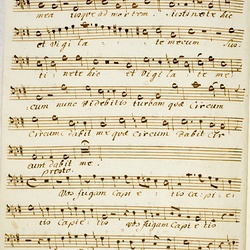 mea usque ad mortem. susti nete hic
et Vigi la te mecum sus
ti nete hic et Vigi la te me
cum nunc Videbitis turbam quæ Circum
Circum dabit me quæ Circum dabit Cir
cum dabit me.
presto.
Vos fugam Capie tis capi e
tis Capie tis vos fugam
Capie tis